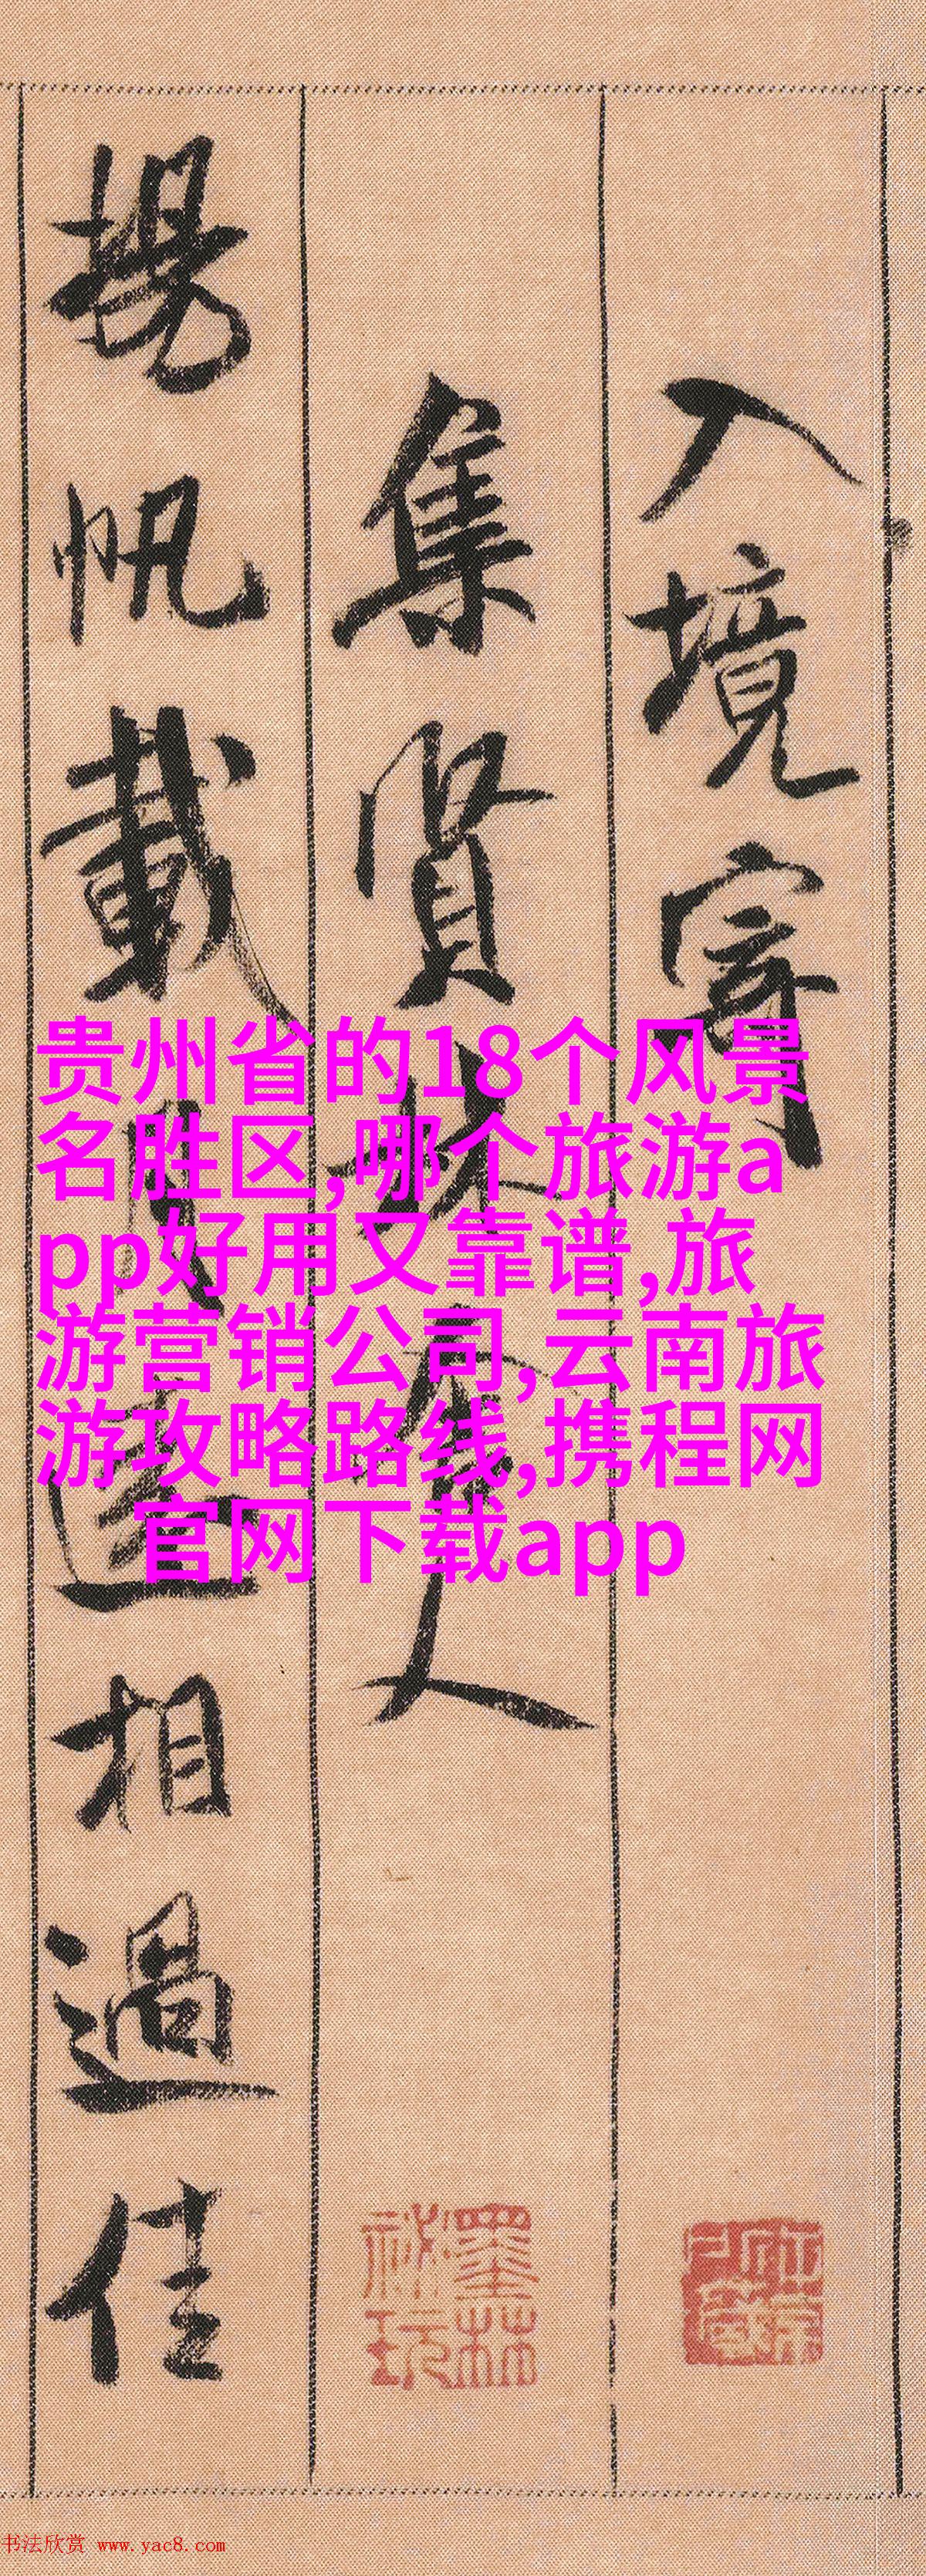 入境寄
集賢林舍人
揚帆載月遠相過佳
贵州省的18个风景
名胜区,哪个旅游a
pp好用又靠谱,旅
游营销公司,云南旅
游攻略路线,携程网
官网下载app
墨林
秘玩
书法欣赏 www.yac8.com